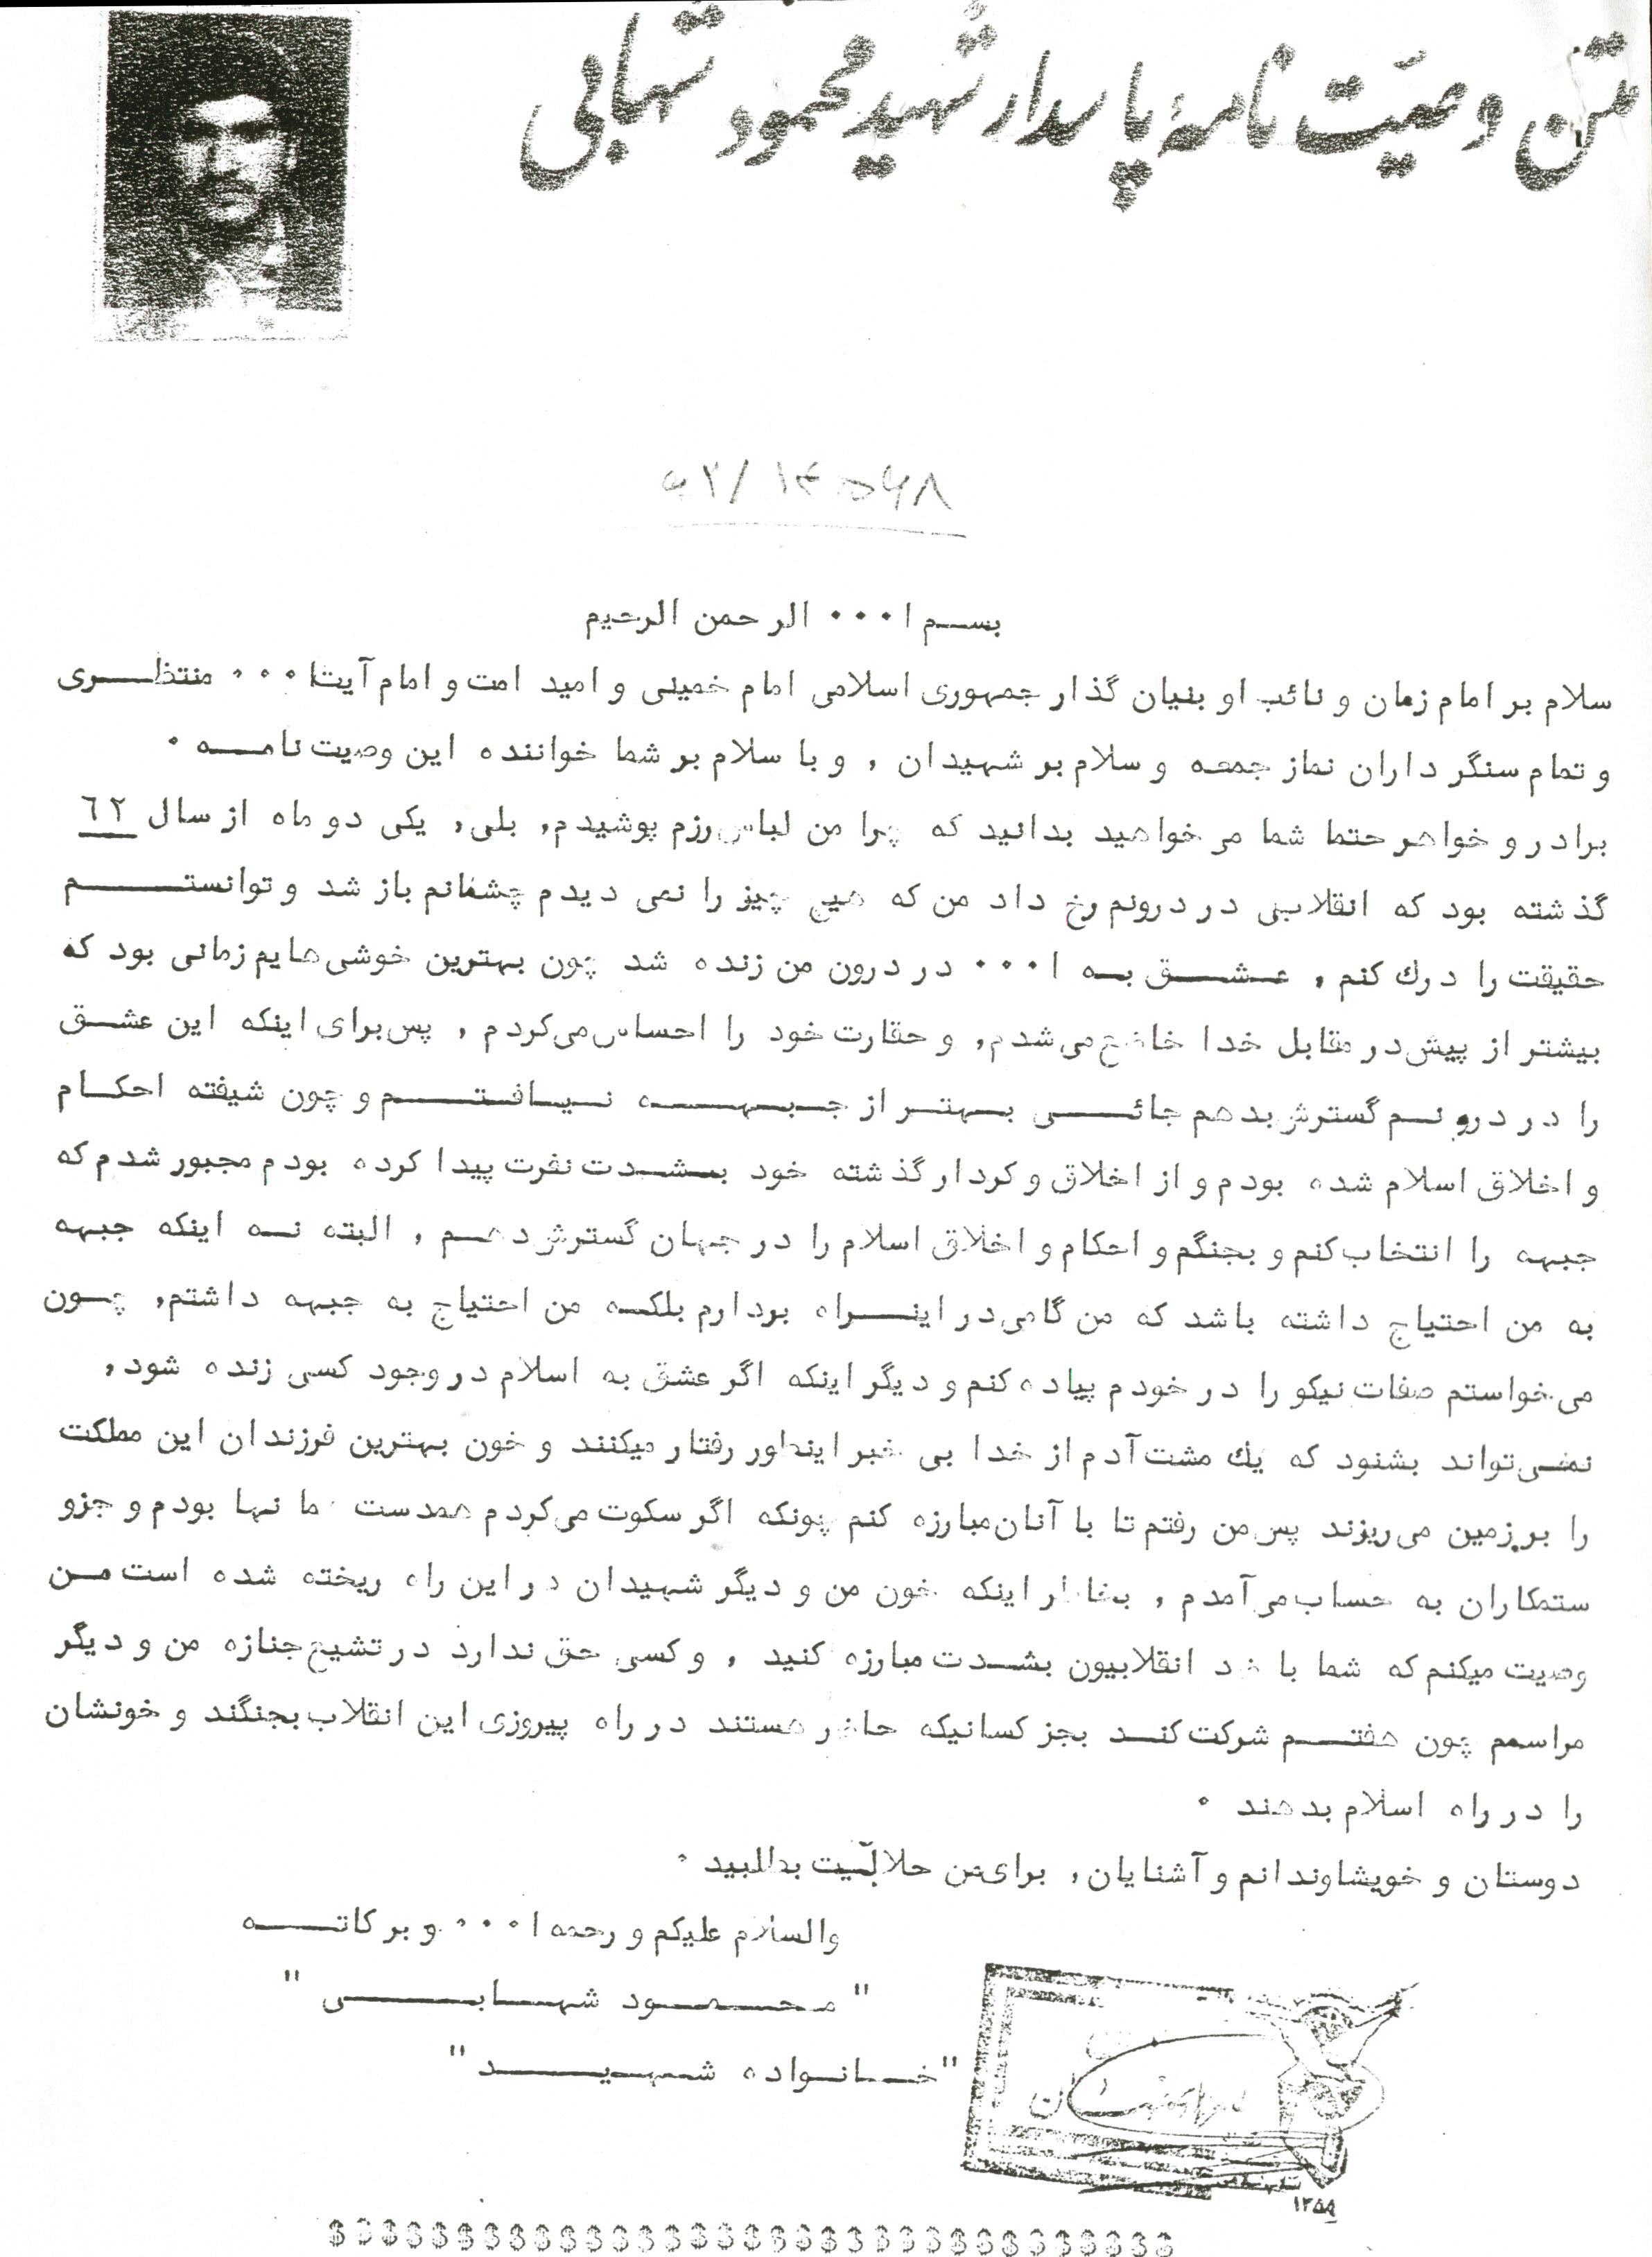 متن وصیّت نامهٔ پاسدار شهید محمود شهابی
بسم ا۰۰۰ الرحمن الرحیم
سلام بر امام زمان و نائب او بنیان گذار جمهوری اسلامی امام خمینی و امید امت و امام آیتا۰۰۰ منتظری
و تمام سنگر داران نماز جمعه و سلام بر شهیدان , و با سلام بر شما خواننده این وصیت نامه ۰
برادر و خواهر حتما شما می خواهید بدانید که چرا من لباس رزم پوشیدم, بلی, یکی دو ماه از سال ٦٢
گذشته بود که انقلابی در درونم رخ داد من که هیچ چیز را نمی دیدم چشمانم باز شد و توانستم
حقیقت را درك کنم , عشق به ا۰۰۰ در درون من زنده شد چون بهترین خوشی هایم زمانی بود که
بیشتر از پیش در مقابل خدا خاضع می شدم, و حقارت خود را احساس می کردم , پس برای اینکه این عشق
را در درونم گسترش بدهم جائی بهتر از جبهه نیافتم و چون شیفته احکام
و اخلاق اسلام شده بودم و از اخلاق و کردار گذشته خود بشدت نفرت پیدا کرده بودم مجبور شدم که
جبهه را انتخاب کنم و بجنگم و احکام و اخلاق اسلام را در جهان گسترش دهم , البته نه اینکه جبهه
به من احتیاج داشته باشد که من گامی در اینراه بردارم بلکه من احتیاج به جبهه داشتم, چون
می خواستم صفات نیکو را در خودم پیاده کنم و دیگر اینکه اگر عشق به اسلام در وجود کسی زنده شود,
نمی تواند بشنود که یك مشت آدم از خدا بی خبر اینطور رفتار میکنند و خون بهترین فرزندان این مملکت
را بر زمین می ریزند پس من رفتم تا با آنان مبارزه کنم چونکه اگر سکوت می کردم همدست بودم و جزو
ستمکاران به حساب می آمدم , بخاطر اینکه خون من و دیگر شهیدان در این راه ریخته شده است من
وصیت میکنم که شما با ضد انقلابیون بشدت مبارزه کنید , و کسی حق ندارد در تشیع جنازه من و دیگر
مراسمم چون هفتم شرکت کند بجز کسانیکه حاضر هستند در راه پیروزی این انقلاب بجنگند و خونشان
را در راه اسلام بدهند ۰
دوستان و خویشاوندانم و آشنایان, برای من حلالیّت بطلبید ۰
والسلام علیکم و رحمه ا۰۰۰ و برکاته
" محمود شهابی "
"خانواده شهید"